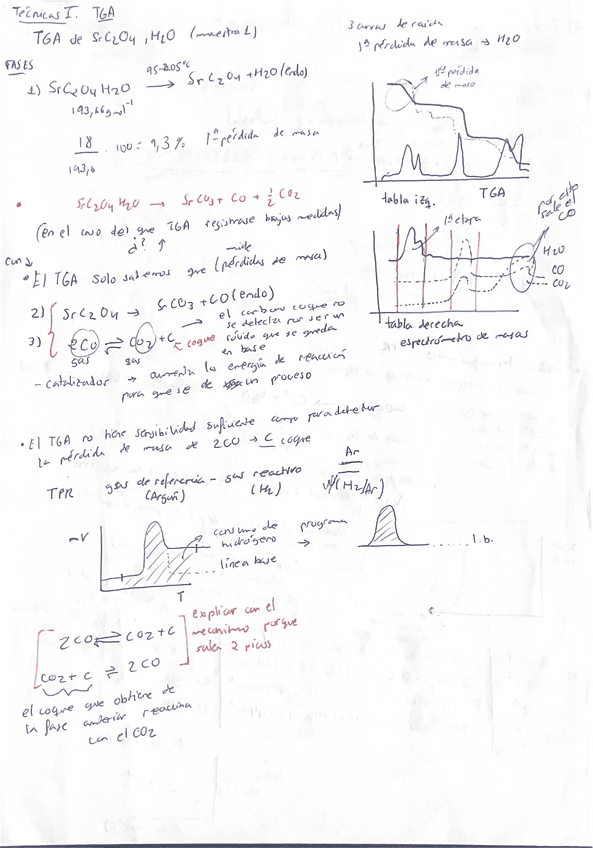 Técnicas I. TGA
TGA de SrC2O4 . H2O (muestra 1)
FASES
1) SrC2O4 H2O 95-205ºC → SrC2O4 + H2O (endo)
193,66 g mol-1
18 / 193,6 . 100 = 9,3% 1ª pérdida de masa
• SrC2O4 H2O → SrCO3 + CO + 1/2 CO2
(en el caso de que TGA registrase bajas medidas)
¿? ↑
con
mide
• El TGA solo sabemos que (pérdidas de masa)
2) SrC2O4 → SrCO3 + CO (endo)
3) 2CO ⇌ CO2 + C ← coque
gas gas
→ el carbono coque no
se detecta por ser un
sólido que se queda
en base
- catalizador → aumenta la energía de reacción
para que se de un proceso
• El TGA no tiene sensibilidad suficiente como para detectar
la pérdida de masa de 2CO → C coque
TPR gas de referencia - gas reactivo
(Argón) (H2)
Ar
(H2/Ar)
-V
consumo de
hidrógeno
línea base
T
programa
→
l.b.
2CO ⇌ CO2 + C
CO2 + C ⇌ 2CO
explicar con el
mecanismo porque
salen 2 picos
el coque que obtiene de
la fase anterior reacciona
con el CO2
3 curvas de caída
1ª pérdida de masa → H2O
1ª pérdida
de masa
tabla izq. TGA
1ª etapa
sale el
CO
H2O
CO
CO2
tabla derecha
espectrómetro de masas